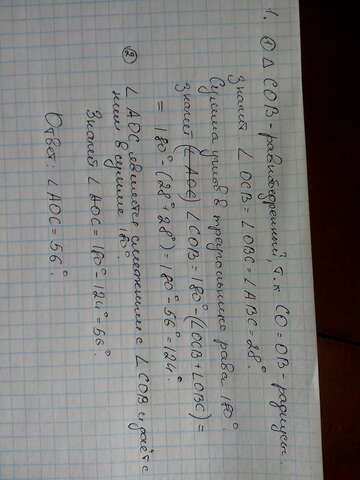 1. ① △ COB - равнобедренный, т.к. CO = OB - радиусы.
Значит ∠ OCB = ∠ OBC = ∠ ABC = 28°.
Сумма углов в треугольнике равна 180°.
Значит (∠ AOC) ∠ COB = 180° - (∠OCB + ∠OBC) =
= 180° - (28° 28°) = 180° - 56° = 124°.
② ∠ AOC является смежными с ∠ COB и даёт с
ним в сумме 180°.
Значит ∠ AOC = 180° - 124° = 56°.
Ответ: ∠ AOC = 56°.